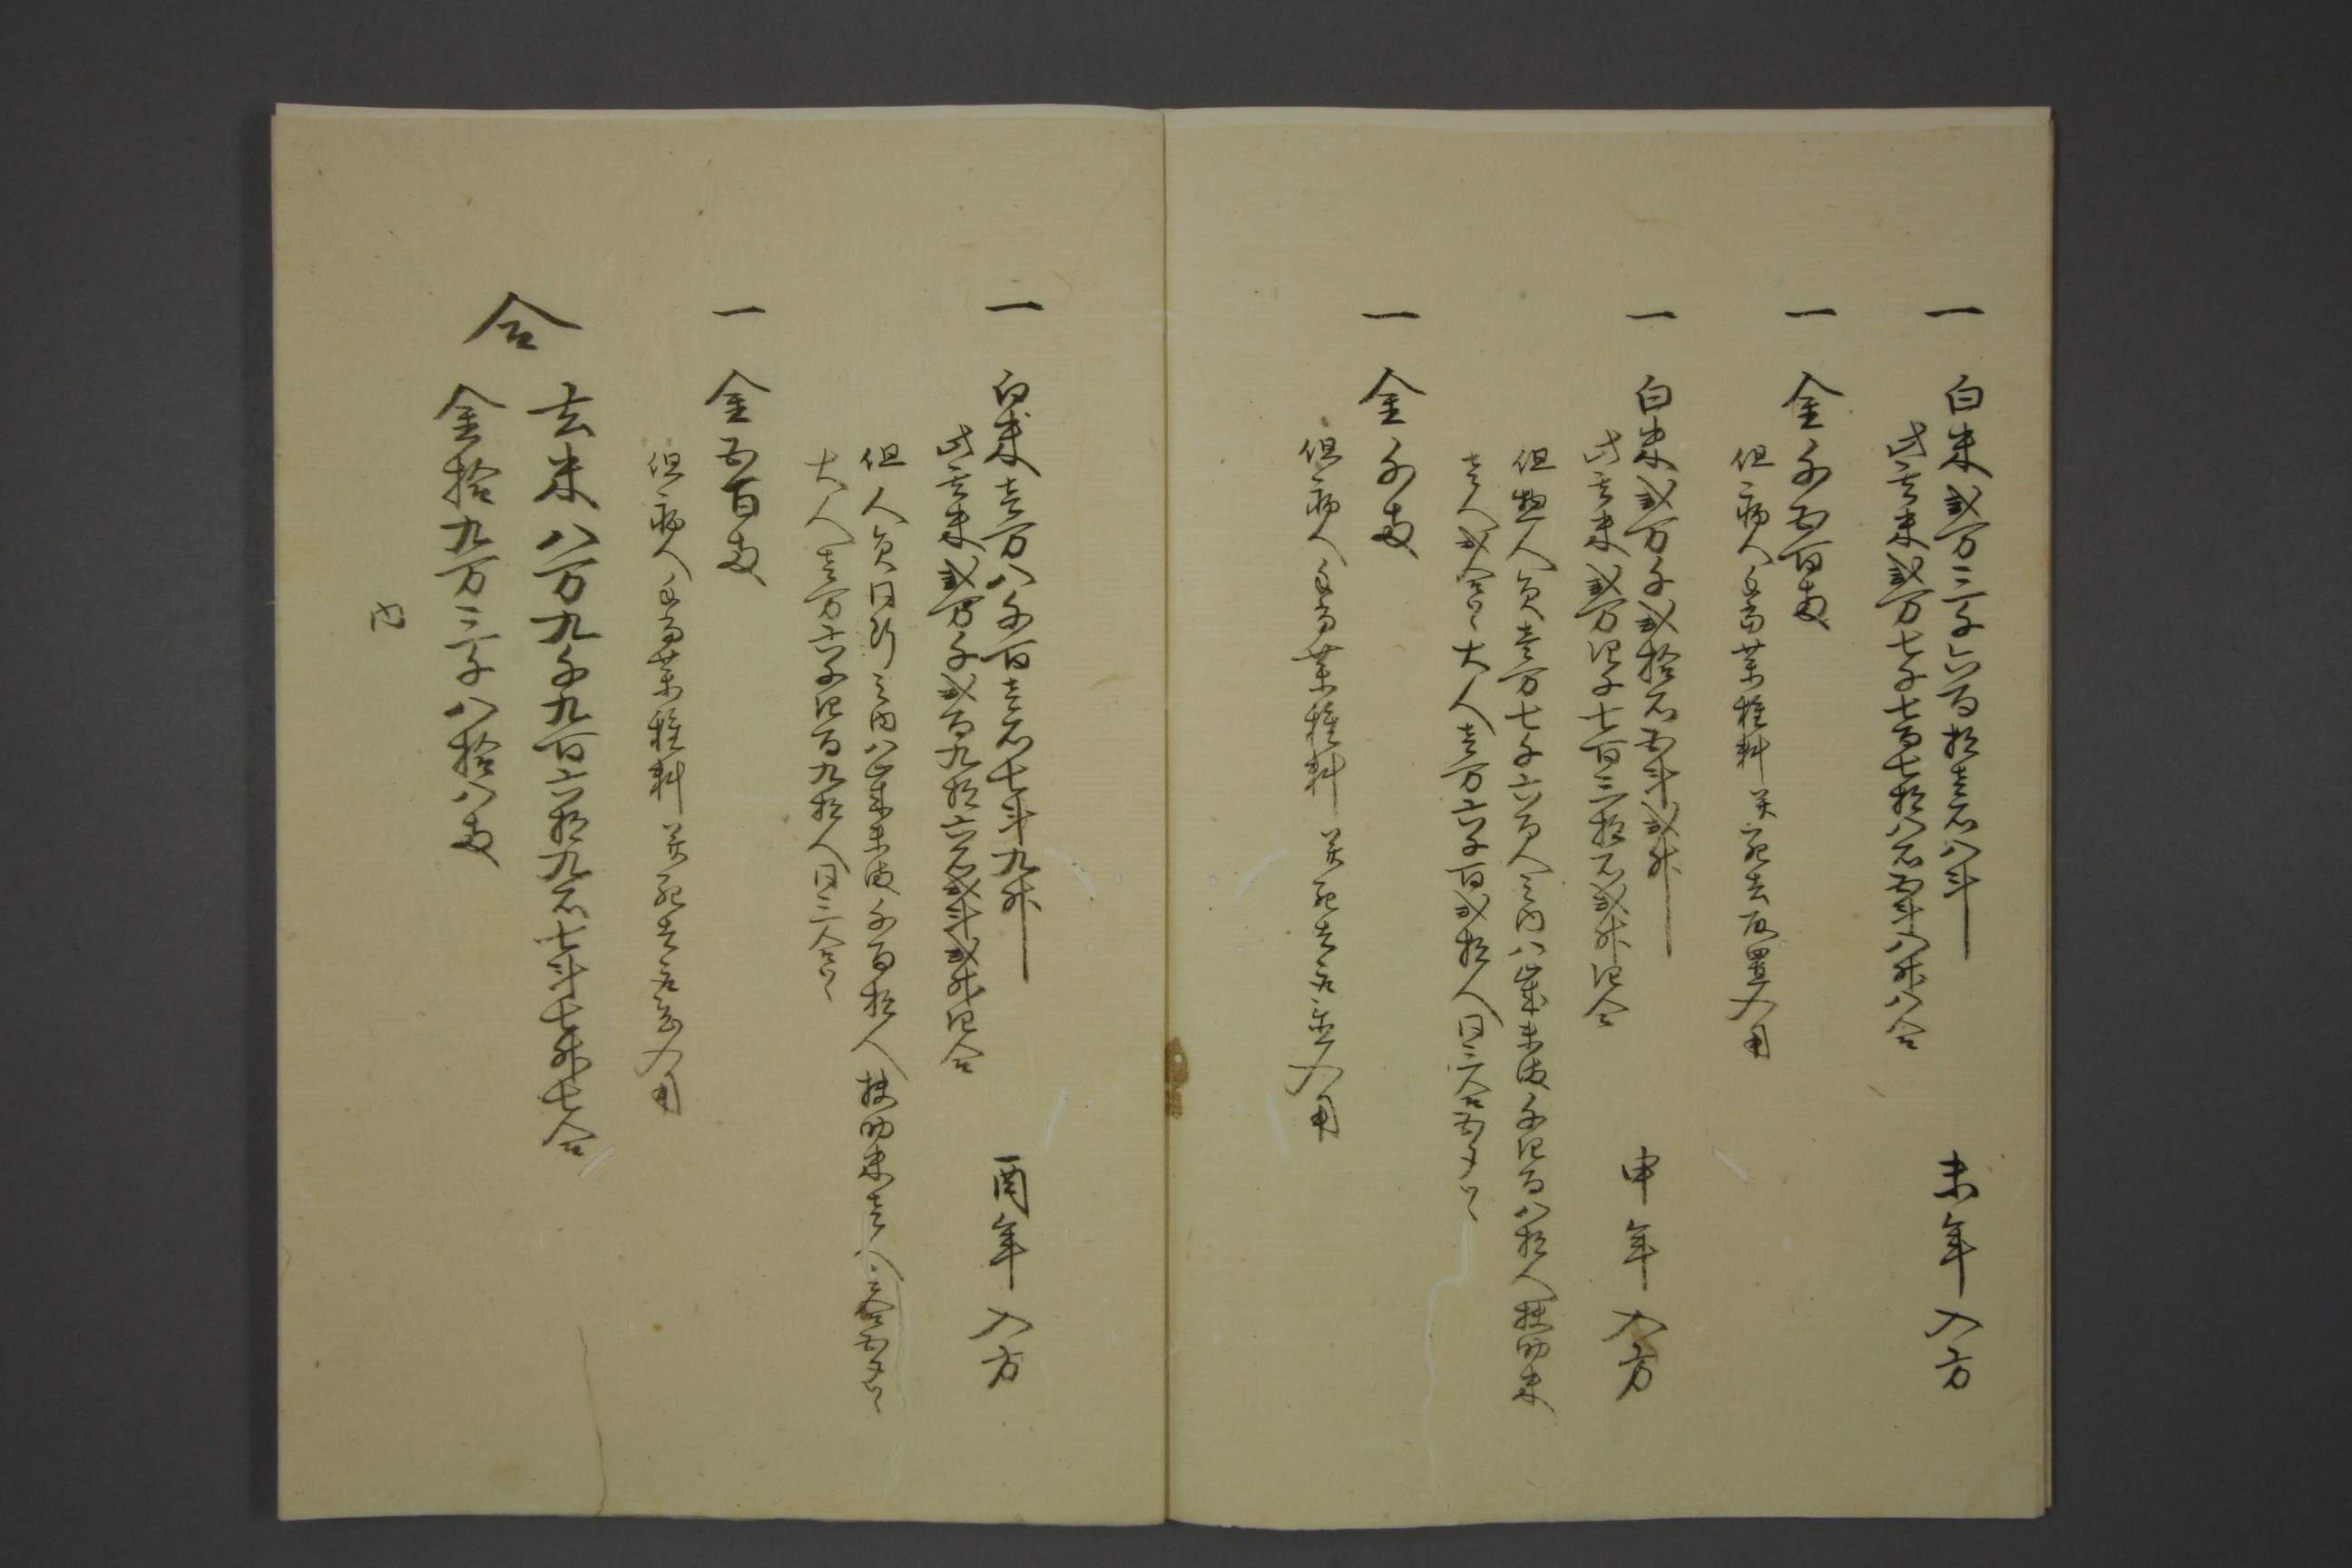 一 白米弐万三千六百拾壱石八斗 未年入方
此玄米弐万七千七百七拾八石五斗八升八合
一 金千五百両
但病人手当薬種料并死去取置入用
一 白米弐万千弐拾石五斗弐升 申年入方
此玄米弐万四千七百三拾石弐升四合
但惣人員壱万七千六百人之内八歳未満千四百八拾人扶助米
壱人弐合ツヽ大人壱万六千百弐拾人日三合五夕ツヽ
一 金千両
但病人手当薬種料并死去取置入用
一 白米壱万八千百壱石七斗九升 酉年入方
此玄米弐万千弐百九拾六石弐斗弐升四合
但人員同断之内八歳未満千百拾人扶助米壱人壱合五夕ツヽ
大人壱万六千四百九拾人日三合ツヽ
一 金五百両
但病人手当薬種料并死去取置入用
合 玄米八万九千九百六拾九石七斗七升七合
金拾九万三千八拾八両
内